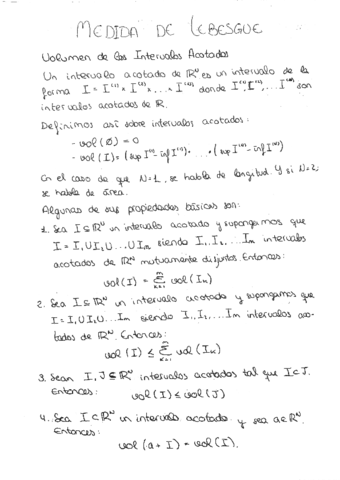 MEDIDA DE LEBESGUE
Volumen de los Intervalos Acotados
Un intervalo acotado de ℝᴺ es un intervalo de la
forma I = I⁽¹⁾ × I⁽²⁾ × ... × I⁽ᴺ⁾ donde I⁽¹⁾, I⁽²⁾, ... I⁽ᴺ⁾ son
intervalos acotados de ℝ.
Definimos así sobre intervalos acotados:
- vol (∅) = 0
- vol (I) = (sup I⁽¹⁾ - inf I⁽¹⁾) · ... · (sup I⁽ᴺ⁾ - inf I⁽ᴺ⁾)
En el caso de que N=1, se habla de longitud. Y si N=2,
se habla de área.
Algunas de sus propiedades básicas son:
1. Sea I ⊆ ℝᴺ un intervalo acotado y supongamos que
I = I₁ ∪ I₂ ∪ ... ∪ Iₘ siendo I₁, I₂, ... Iₘ intervalos
acotados de ℝᴺ mutuamente disjuntos. Entonces:
vol (I) = Σₖ₌₁ᵐ vol (Iₖ)
2. Sea I ⊆ ℝᴺ un intervalo acotado y supongamos que
I = I₁ ∪ I₂ ∪ ... Iₘ siendo I₁, I₂, ... Iₘ intervalos aco-
tados de ℝᴺ. Entonces:
vol (I) ≤ Σₖ₌₁ᵐ vol (Iₖ)
3. Sean I, J ⊆ ℝᴺ intervalos acotados tal que I ⊂ J.
Entonces: vol (I) ≤ vol (J)
4. Sea I ⊂ ℝᴺ un intervalo acotado y sea a ∈ ℝᴺ.
Entonces:
vol (a + I) = vol (I).